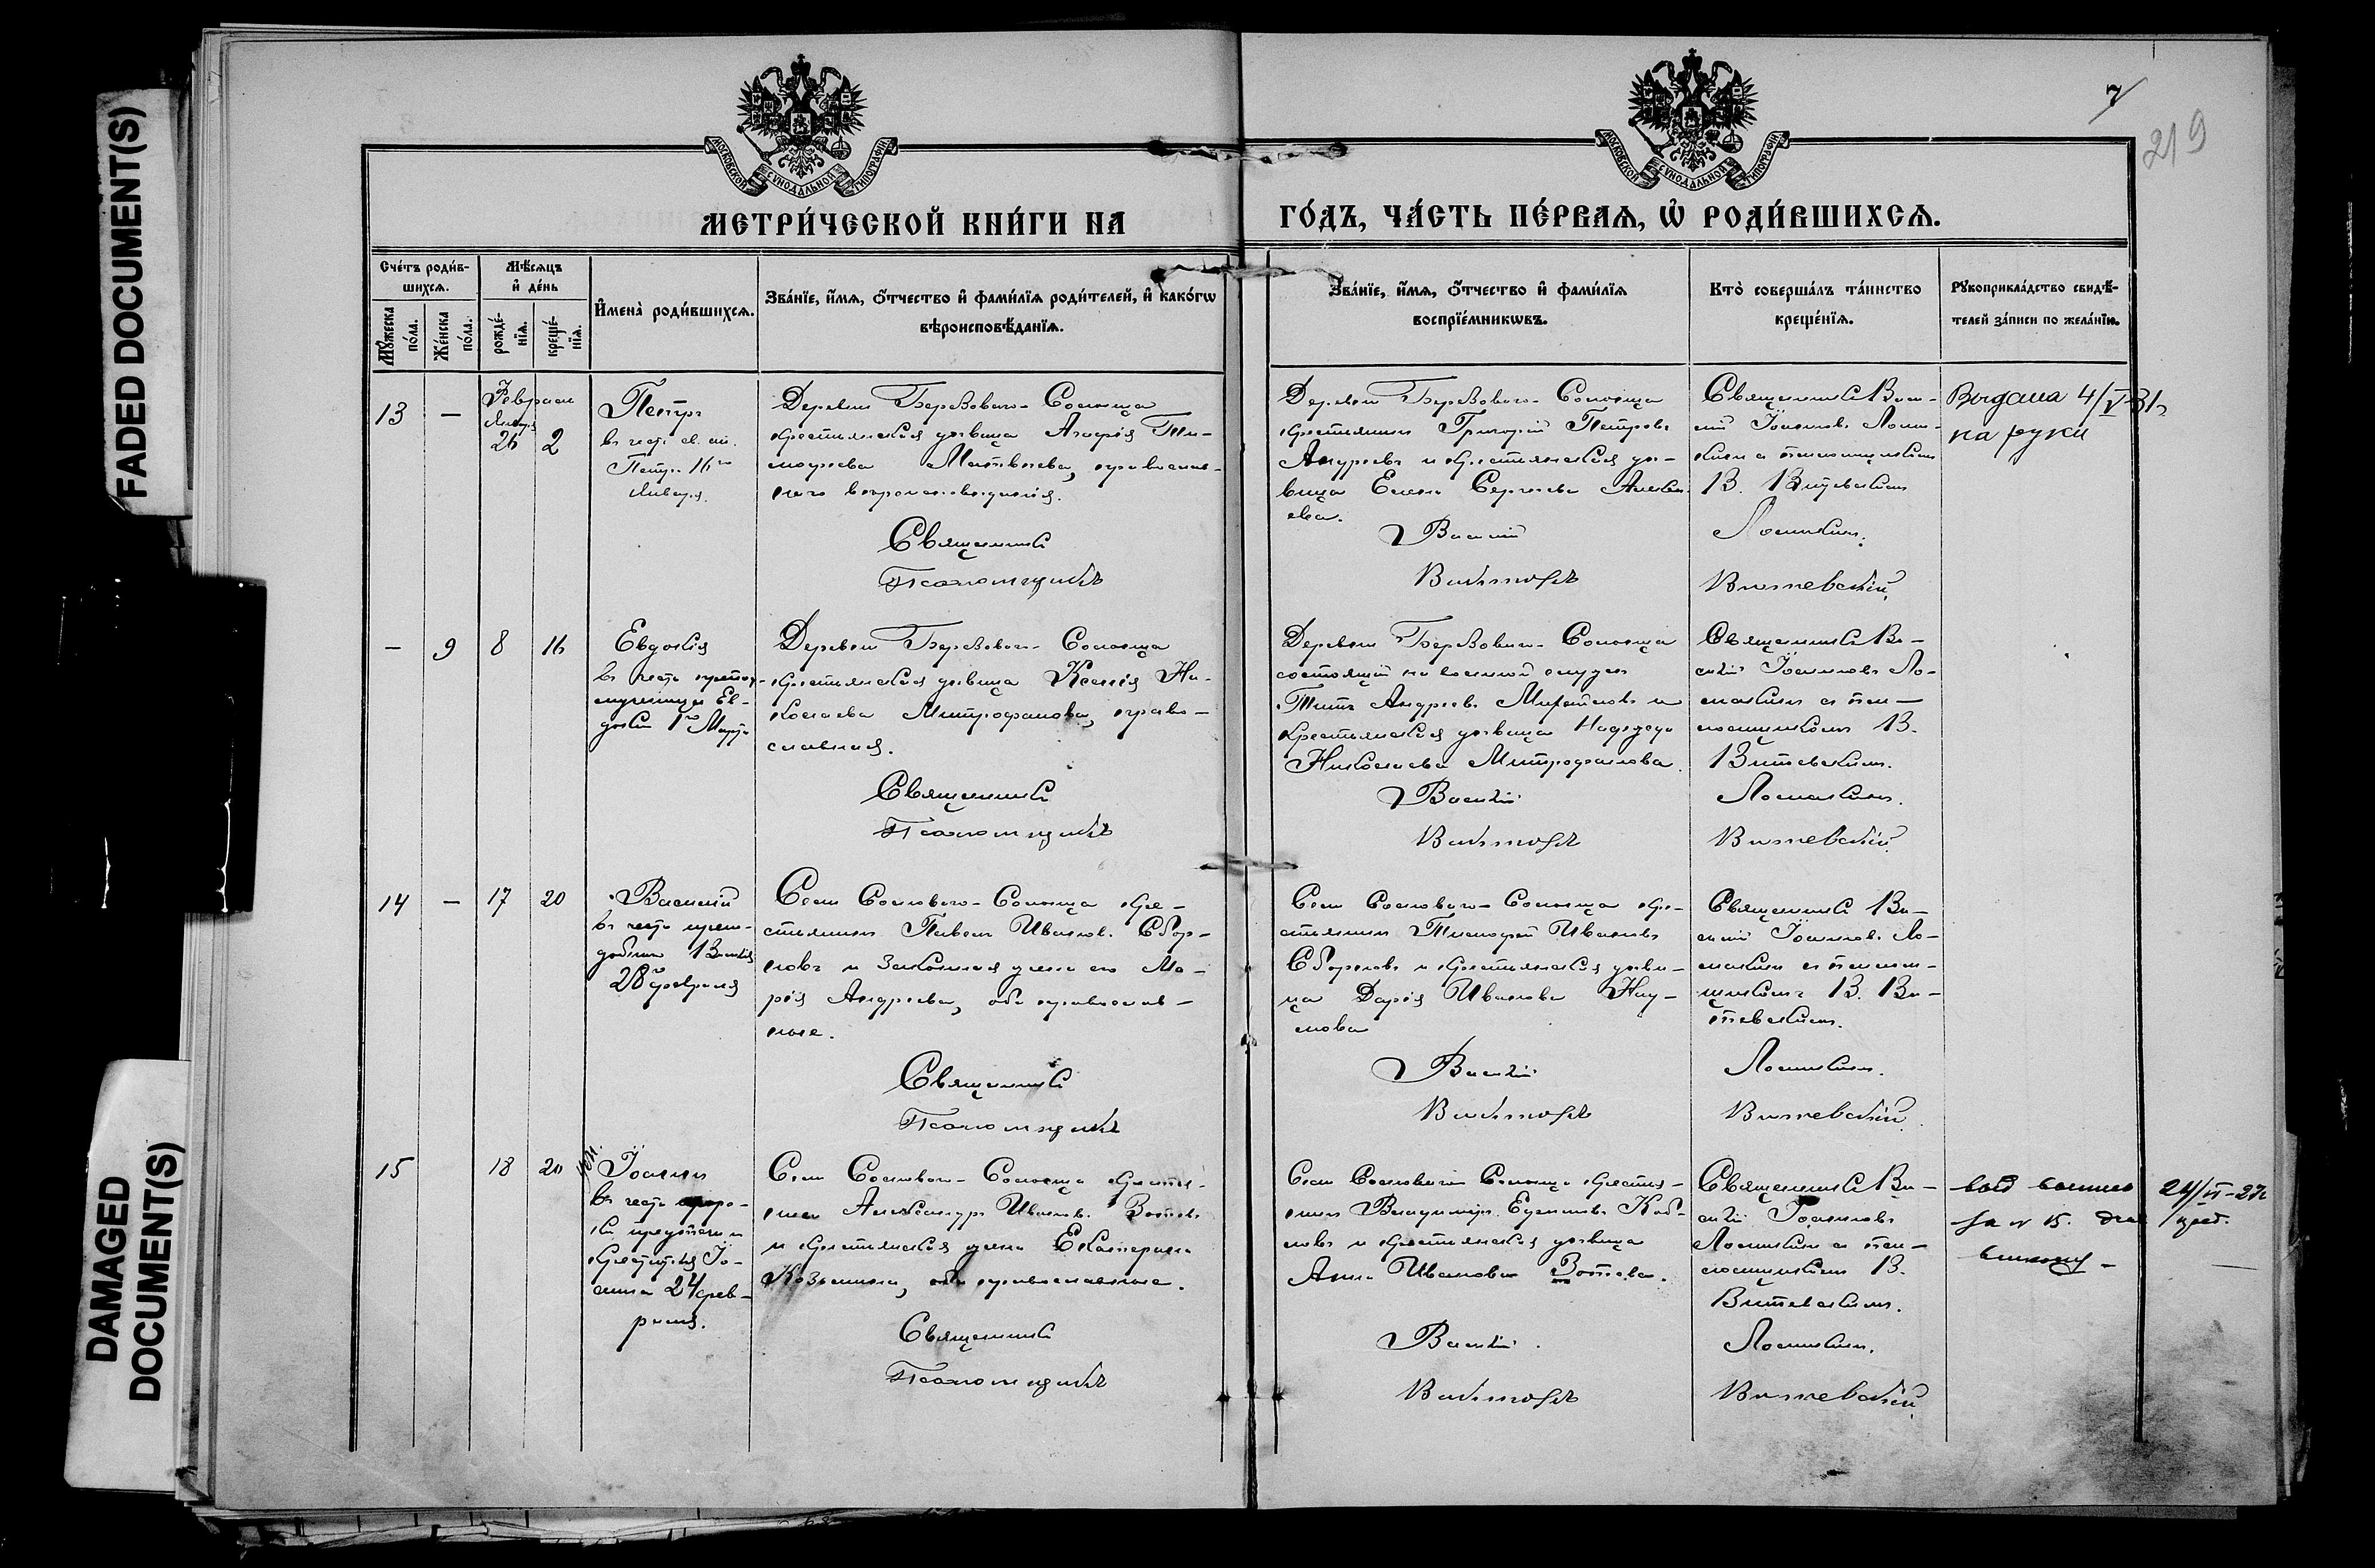 FADED DOCUMENT(S)
DAMAGED
DOCUMENT(S)
МОСКОВСКОЙ СѴНОДАЛЬНОЙ ТИПОГРАФІИ
МОСКОВСКОЙ СѴНОДАЛЬНОЙ ТИПОГРАФІИ
7
219
МЕТРИ́ЧЕСКОЙ КНИ́ГИ НА
ГО́ДЪ, ЧА́СТЬ ПЕ́РВАѦ, Ѡ҆ РОДИ́ВШИХСѦ.
Сче́тъ роди́в-
шихсѧ.
Мꙋ́жеска
по́ла.
Же́нска
по́ла.
Мѣ́сѧцъ
и҆ де́нь
рожде́-
нїѧ.
креще́-
нїѧ.
И҆мена̀ роди́вшихсѧ.
Зва́нїе, и҆́мѧ, ѻ҆́тчество и҆ фами́лїѧ роди́телей, и҆ како́гѡ
вѣроисповѣ́данїѧ.
Зва́нїе, и҆́мѧ, ѻ҆́тчество и҆ фами́лїѧ
воспрїе́мникѡвъ.
Кто̀ соверша́лъ та́инство
креще́нїѧ.
Рꙋкоприкла́дство свидѣ́-
телей за́писи по жела́нїю.
13
—
Февраля
Января
26
2
Петръ
въ честь св. ап.
Петра 16го
Января.
Деревни Березоваго-Солонца
крестьянская дѣвица Агафія Ти-
моѳеева Матвѣева, православ-
наго вѣроисповѣданія.
Священникъ
Псаломщикъ
Деревни Березоваго-Солонца
крестьянинъ Григорій Петровъ
Андреевъ и крестьянская дѣ-
вица Елена Сергѣева Алексѣ-
ева.
Василій
Викторъ
Священникъ Васи-
лій Іоанновъ Лома-
кинъ съ псаломщикомъ
В. Витевскимъ
Ломакинъ.
Витевскій.
Выдана 4/V-31г
на руки
—
9
8
16
Евдокія
въ честь препод-
мученицы Ев-
докіи 1го Марта
Деревни Березоваго-Солонца
крестьянская дѣвица Ксенія Ни-
колаева Митрофанова, право-
славная.
Священникъ
Псаломщикъ
Деревни Березоваго-Солонца
состоящій на военной службѣ
Титъ Андреевъ Михайловъ и
крестьянская дѣвица Надежда
Николаева Митрофанова.
Василій
Викторъ
Священникъ Ва-
силій Іоанновъ Ло-
макинъ съ пса-
ломщикомъ В.
Витевскимъ.
Ломакинъ.
Витевскій.
14
—
17
20
Василій
въ честь препо-
добнаго Василія
28го февраля
Села Сосноваго-Солонца кре-
стьянинъ Павелъ Ивановъ Сбор-
новъ и законная жена его Ма-
рія Андреева, оба православ-
ные.
Священникъ
Псаломщикъ
Села Сосноваго-Солонца кре-
стьянинъ Тимофей Ивановъ
Сборновъ и крестьянская дѣви-
ца Дарія Иванова Нау-
мова
Василій
Викторъ
Священникъ Ва-
силій Іоанновъ Ло-
макинъ съ псалом-
щикомъ В. Ви-
тевскимъ.
Ломакинъ.
Витевскій.
15
18
20
Іоаннъ
въ честь проро-
ка предтечи и
крестителя Іо-
анна 24 фев-
раля.
Села Сосноваго-Солонца крестья-
нинъ Александръ Ивановъ Зотовъ
и крестьянская жена Екатерина
Козьмина, оба православные.
Священникъ
Псаломщикъ
Села Сосноваго Солонца крестья-
нинъ Владиміръ
и крестьянская дѣвица
Анна Иванова Зотова.
Василій
Викторъ
Священникъ Ва-
силій Іоанновъ
Ломакинъ съ пса-
ломщикомъ В.
Витевскимъ.
Ломакинъ.
Витевскій
за № 15.
24/VI-27г